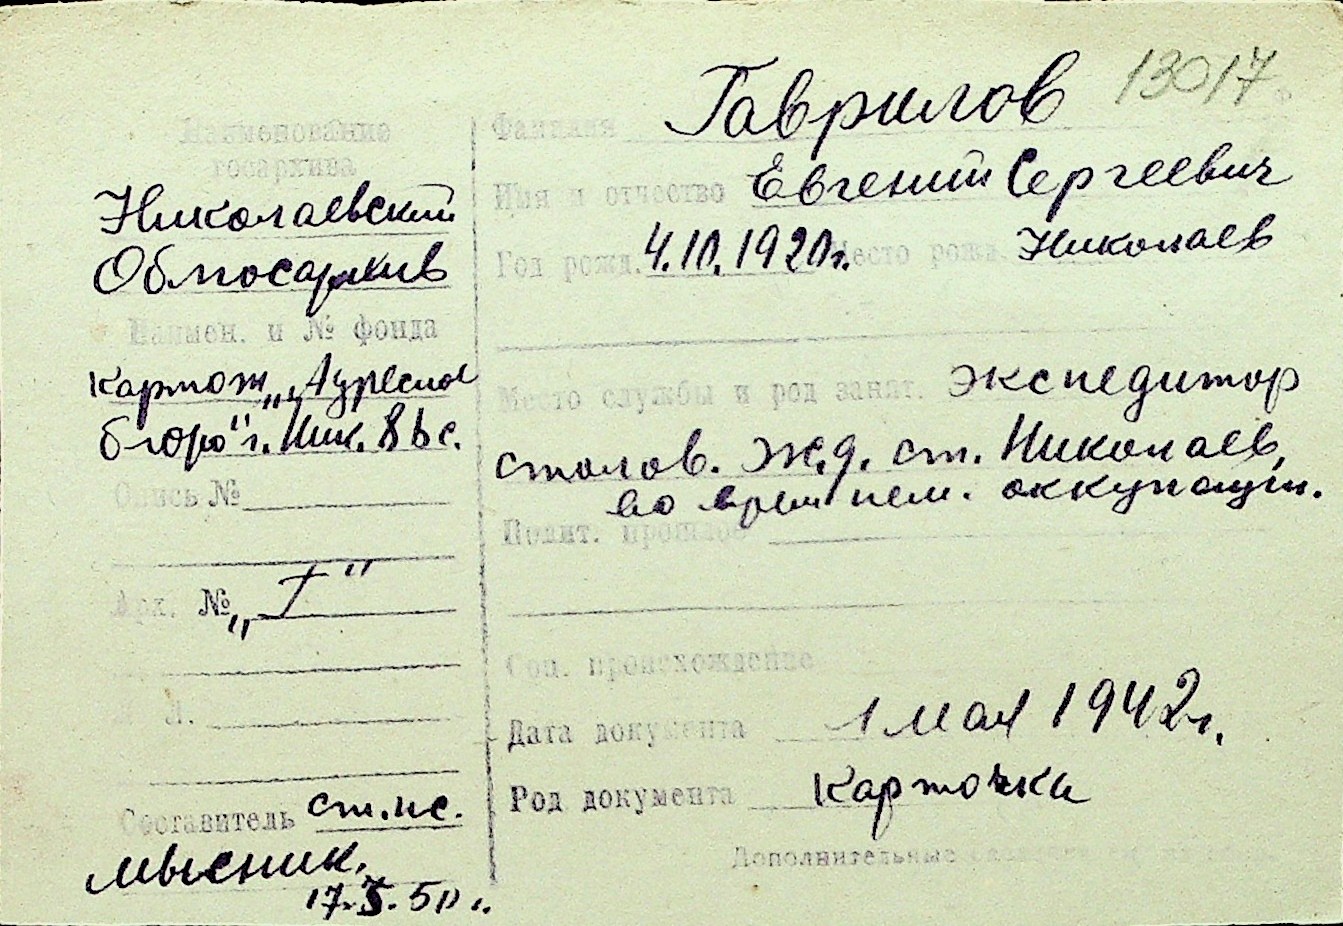 13017
Наименование
госархива
Николаевский
Облгосархив
Наимен. и № фонда
Картот. „Адресное
бюро" г. Ник.
Опись №
Арх. № „Г"
Л.
Составитель ст. нс.
Мысник.
17.X.50 г.
Фамилия Гаврилов
Имя и отчество Евгений Сергеевич
Год рожд. 4.10.1920г. Место рожд. Николаев
Место службы и род занят. экспедитор
столов. ж.д. ст. Николаев,
во время нем. оккупации.
Полит. прошлое
Соц. происхождение
Дата документа 1 мая 1942г.
Род документа Карточка
Дополнительные